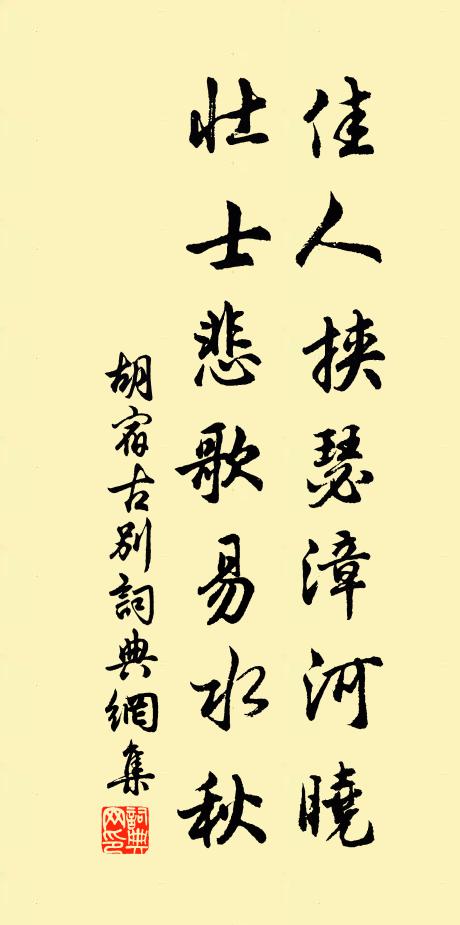 佳人挾瑟漳河曉
壯士悲歌易水秋
胡宿古別詞典網集
詞典网印